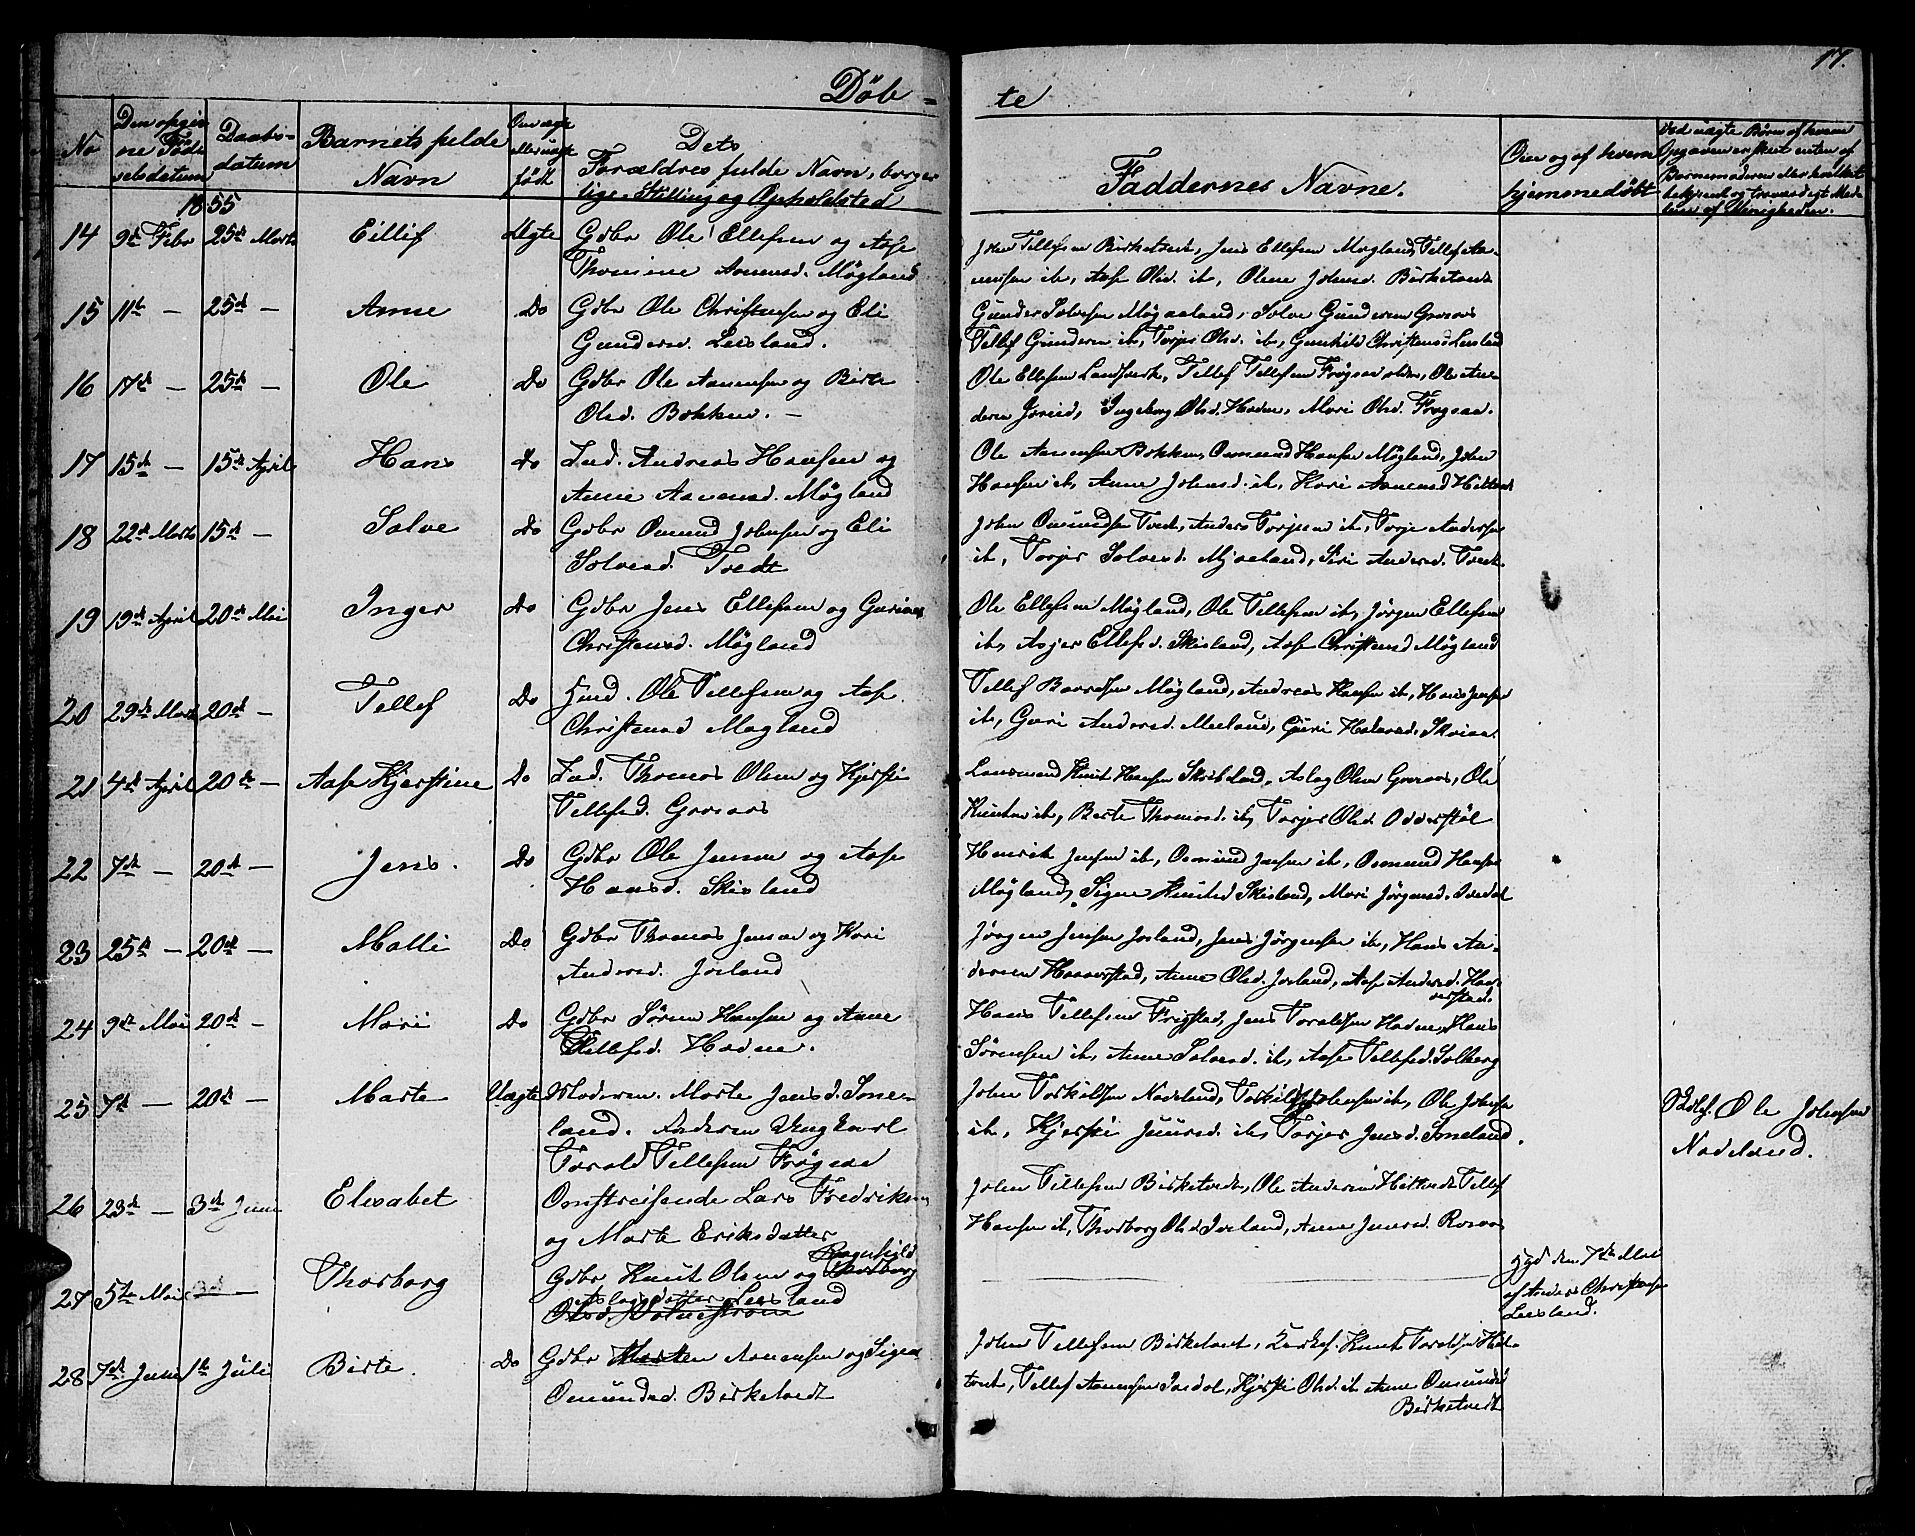 17.
Døb-
te
No
Den opgiv
ne Føds
velsdatum
Daabs-
datum
Barnets fulde
Navn
Om ægte
eller uægt
født
Dets
Forældres fulde Navn, borger
lige Stilling og Opholdsted
Faddernes Navne.
Om og af hvem
hjemmedøbt
Ved uægte Børn af hvem
Opgaven er skeet enten af
Barnemoderen eller hvilket
bekjendt og troværdigt Med
lem af Menigheden.
1855
14 9de Febr 25de Marts Eillif Ægte Gdbr Ole Ellefsen og Aase
Thomine Aanensd. Møgland
John Tellefsen Birketvedt, Jens Ellefsen Møgland, Tellef Aa-
nensen it, Aase Olsd. it, Olene Johnsd. Birketvedt
15 11te — 25de — Anne Do Gdbr Ole Christensen og Eli
Gundersd. Leesland.
Gunder Solvesen Møgaaland, Solve Gundersen Grosaas
Tellef Gundersen it, Torjer Olsd. it, Gunhild Christensd Leesland
16 17de — 25de — Ole Do Gdbr Ole Aanensen og Birte
Olsd. Bokken. —
Ole Ellefsen Landsverk, Tellef Tellefsen Frøgsaa, Ole An-
dersen Ingeborg Olsd. Haadem, Mari Olsd. Frøgsaa.
17 15de — 15de April Hans do Ind. Andreas Hansen og
Anne Aanensd. Møgland
Ole Aanensen Bokken, Osmund Hansen Møgland, John
Hansen it, Anne Johnsd. it, Kari Aanensd
18 22de Marts 15de — Salve Do Gdbr Omund Johnsen og Eli
Solvesd. Tvedt
John Omundsen Tvedt, Anders Torjesen it, Torje Andersen
it, Torjer Solvesd. Mjaaland, Siri Andersd. Tvedt.
19 19de April 20de Mai Inger Do Gdbr Jens Ellefsen og Guriane
Christensd. Møgland
Ole Ellefsen Møgland, Ole Tellefsen it, Jørgen Ellefsen
it, Asjer Ellefsd. Skisland, Aase Christensd Møgland
20 29de Marts 20de — Tellef Do Hmd. Ole Tellefsen og Aase
Christensd Møgland
Tellef Baardsen Møgland, Andreas Hansen it, Hans Jensen
it, Guri Andersd. Meeland, Guri Halvorsd.
21 4de April 20de — Aase Kjerstine Do Ind. Thomas Olsen og Kjersti
Tellefsd. Grosaas
Lensmand Knut Hansen Skribeland, Aslag Olsen Grosaas, Ole
Knutsen it, Berte Thomasd. it, Torjer Olsd. Odderstøl
22 7de — 20de — Jens. Do Gdbr Ole Jensen og Aase
Hansd. Skisland
Henrik Jensen it, Osmund Jensen it, Osmund Hansen
Møgland, Signe Knutsd Skisland, Mari Jørgensd.
23 25de — 20de — Malli Do Gdbr Thomas Jensen og Kari
Andersd. Josland
Jørgen Jensen Josland, Jens Jørgensen it, Hans An-
dersen Haaverstad, Anne Olsd. Josland, Aase Andersd. Haav-
erstad.
24 9de Mai 20de — Mari Do Gdbr Søren Hansen og Anne
Tellefsd. Hodne.
Hans Tellefsen Frigstad, Jens Toraldsen Hodne, Hans
Sørensen it, Anne Solvesd. it, Aase Tellefsd. Solberg
25 7de — 20de — Marte Uægte Moderen Marte Jensd. Sone-
land. Faderen Ungkarl
Torald Tellefsen Frøgsaa
John Torkildsen Nodeland, Torkild Johnsen it, Ole Johnsen
it, Kjersti Juursd. it, Torjer Jensd. Soneland.
Ole Johnsen
Nodeland.
26 23de — 3de Juni Elisabet Omstreifende Lars Fredriksen
og Marte Eriksdatter
John Tellefsen Birketvedt, Ole Andersen Hiltvedt, Tellef
Hansen it, Thorborg Olsd. Iveland, Anne Jensd. Rosaas
27 5te Mai 3de — Thorborg Gdbr Knut Olsen og Thorborg
Ragnhild
Aslagsdatter Leesland
Olsd.
Hjd den 7de Mai
af Anders Christensen
Leesland.
28 7de Juni 1te Juli Birte. Do Gdbr Morten Aanensen og Signe
Omundsd. Birketvedt
John Tellefsen Birketvedt, Kirkes. Knut Toraldsen Hil-
tvedt, Tellef Aanensen, Kjersti Olsd. it Anne Omundsd
Birketvedt